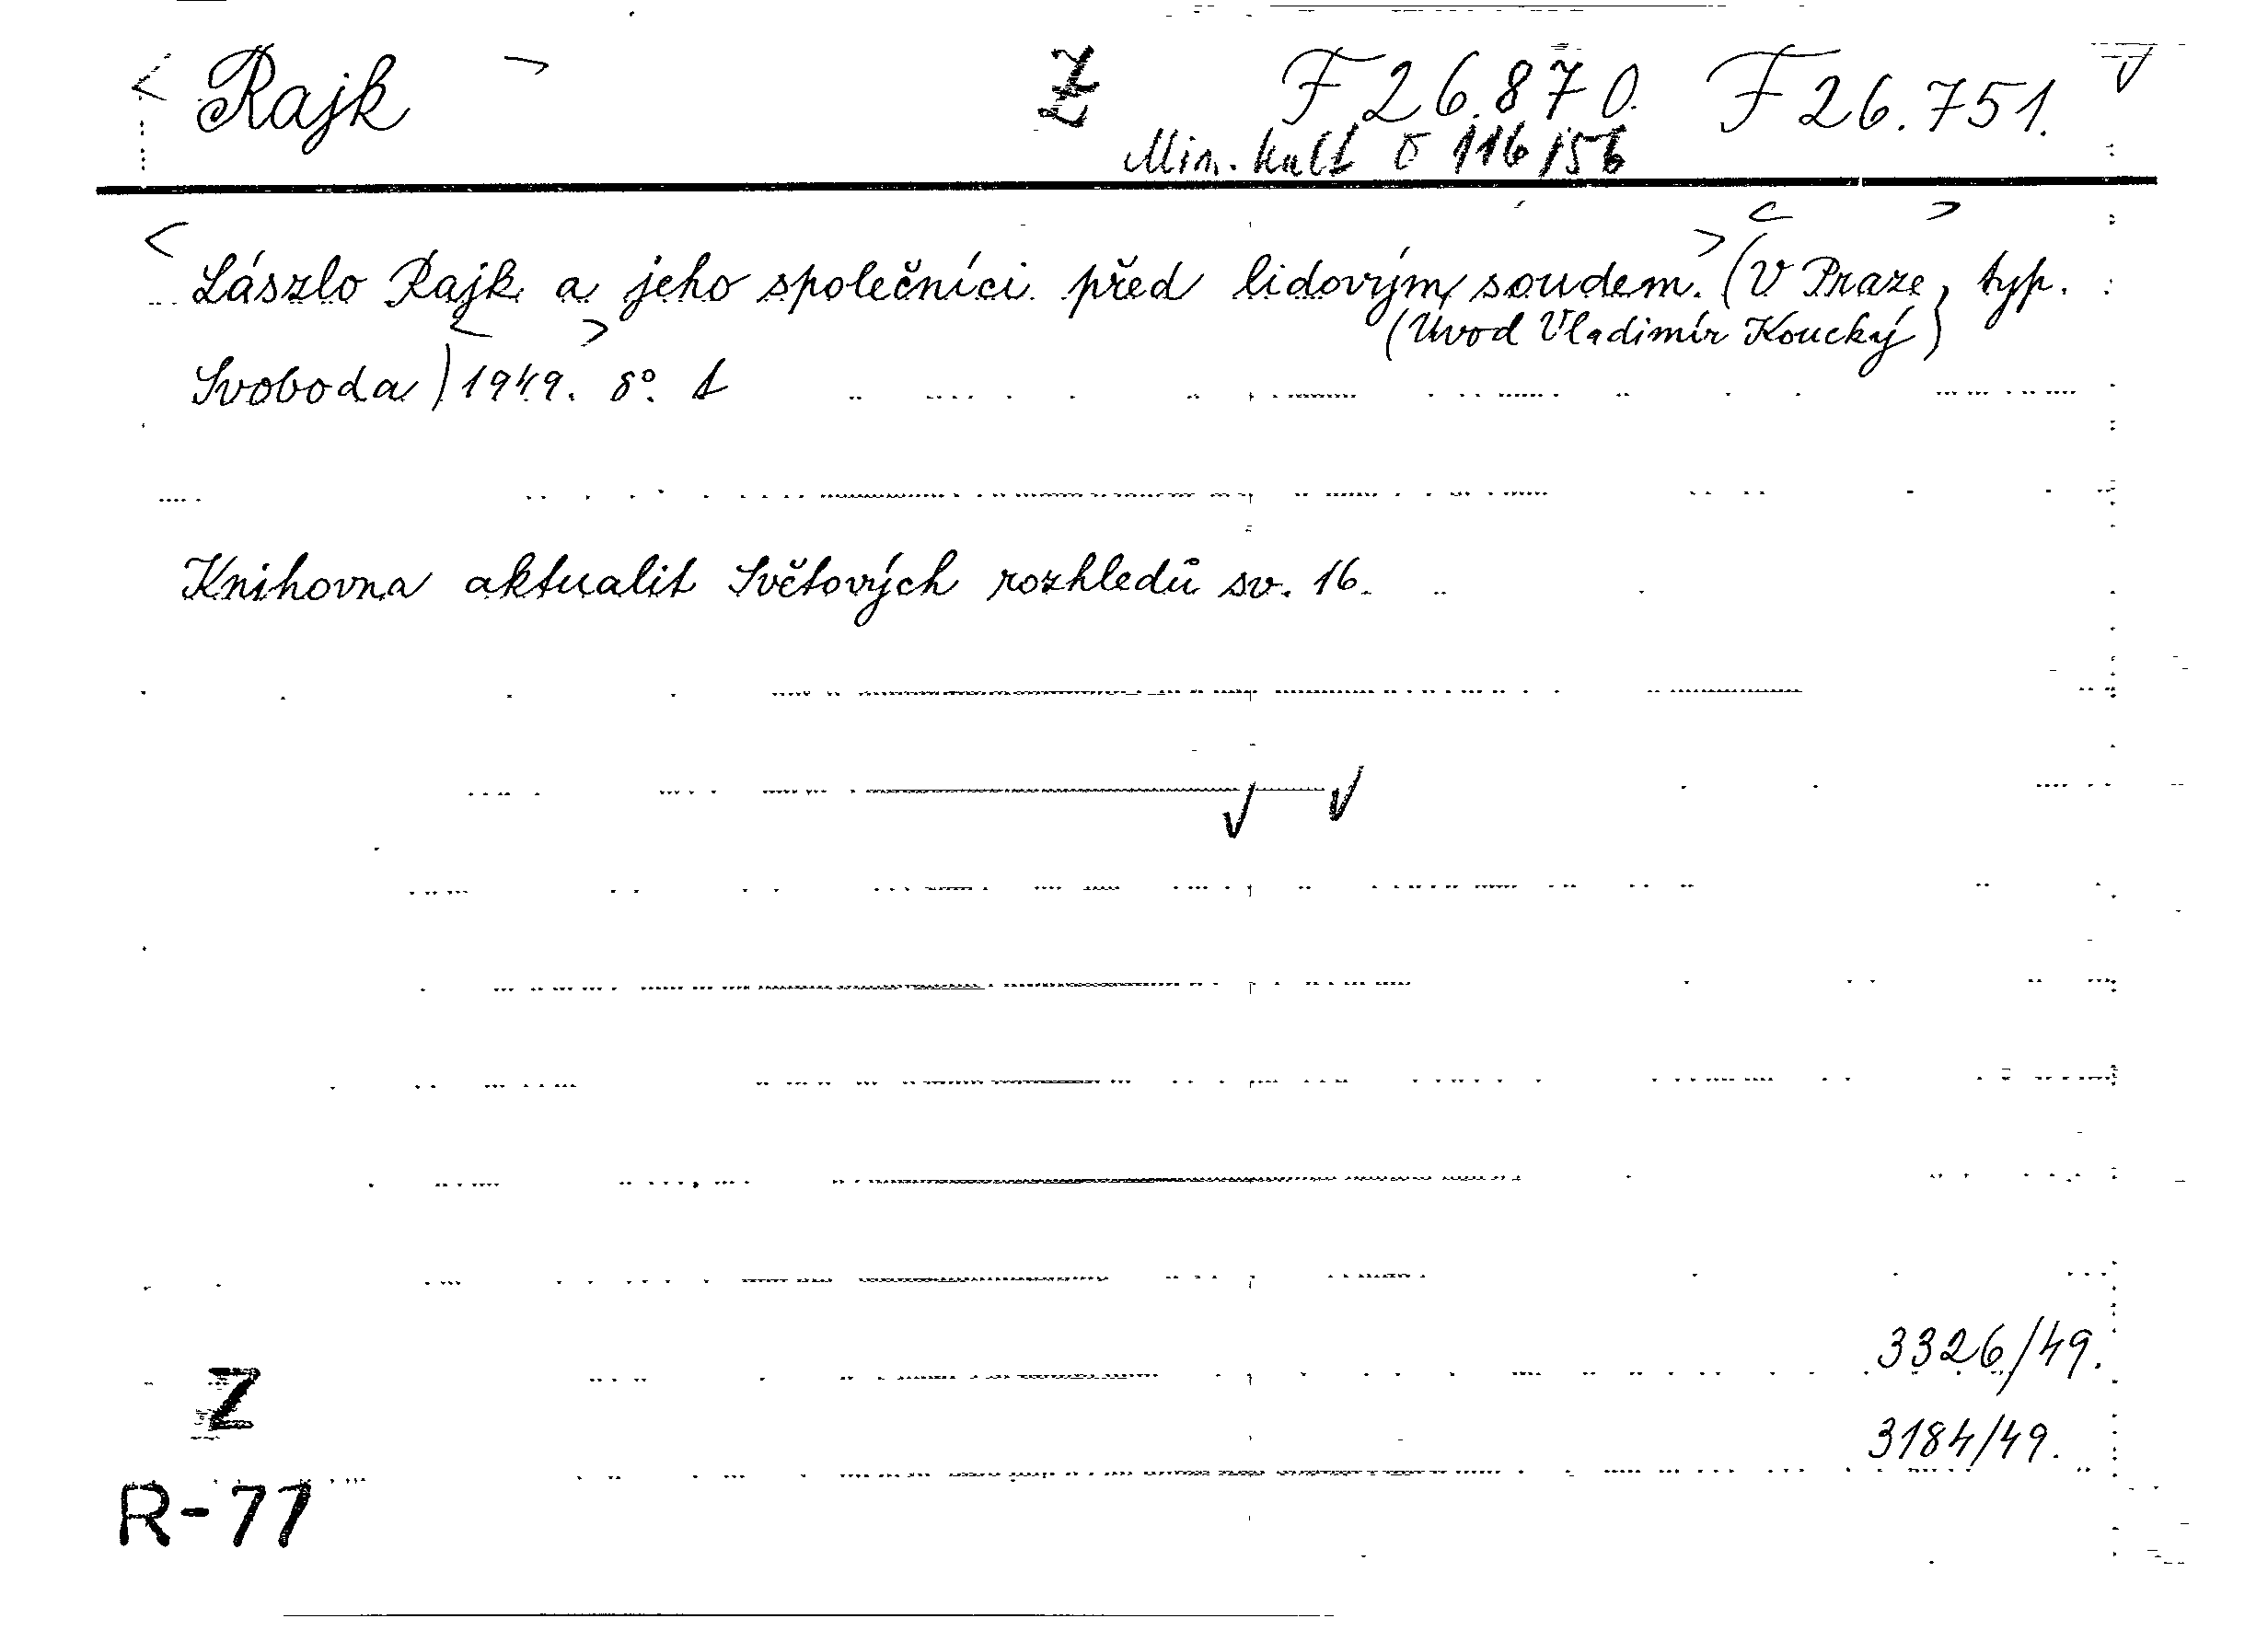 Rajk Z F 26.870. F 26.751.
Min. kult 116/56
László Rajk a jeho společníci před lidovým soudem. (V Praze, typ.
(Úvod Vladimír Koucký)
Svoboda) 1949. 8°.
Knihovna aktualit Světových rozhledů sv. 16.
3326/49.
Z
3184/49.
R-77